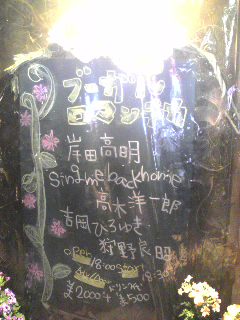 ブーガル
ロマンチカ
岸田高明
Sing me back home
高木洋一郎
吉岡ひろゆき
狩野良昭
open 18:00 start
18:30
ドリンク
¥2000+ ¥500